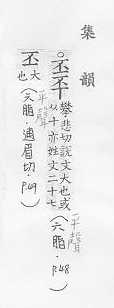 集韻
丕㔻
攀悲切說文大也或
从十亦姓文二十七
(六脂·P.48)
平聲
丕
大
也
(六脂·逋眉切·P.49)
平聲